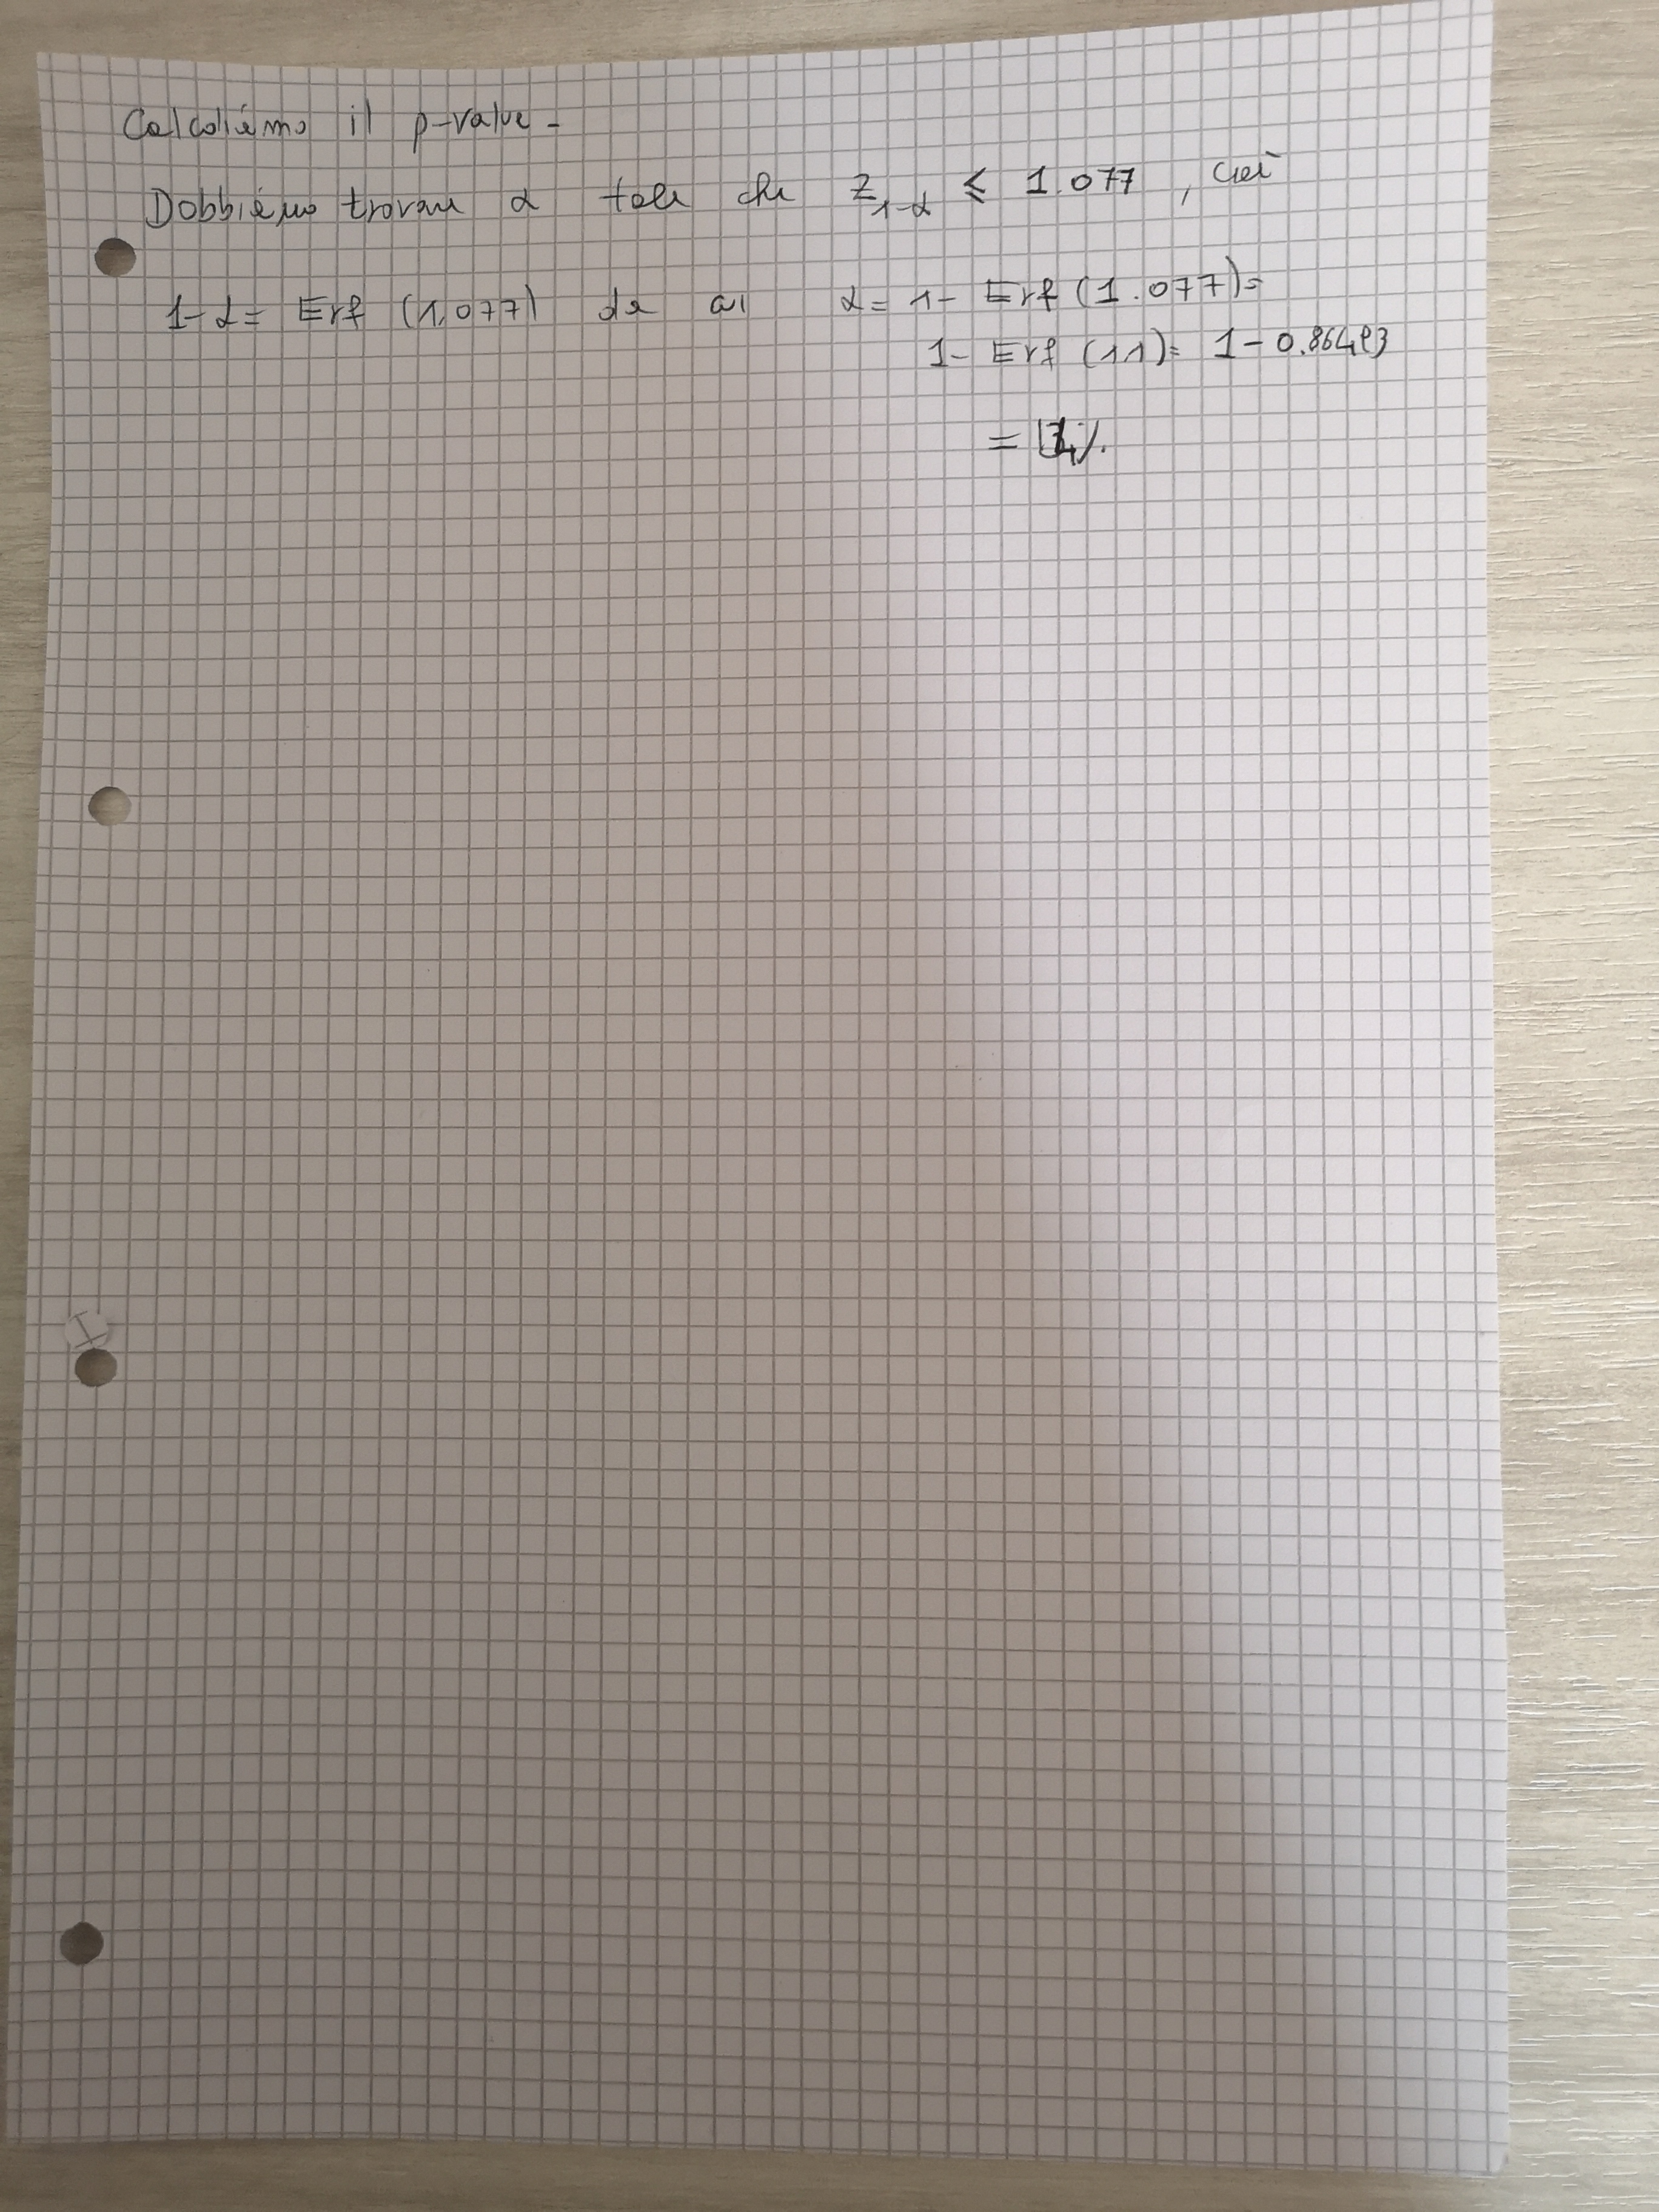 Calcoliamo il p-value -
Dobbiamo trovare α tale che Z1-α ≤ 1.077, cioè
1-α = Erf (1.077) da cui α = 1 - Erf (1.077) =
1 - Erf (1.1) = 1 - 0.86433
= 14%